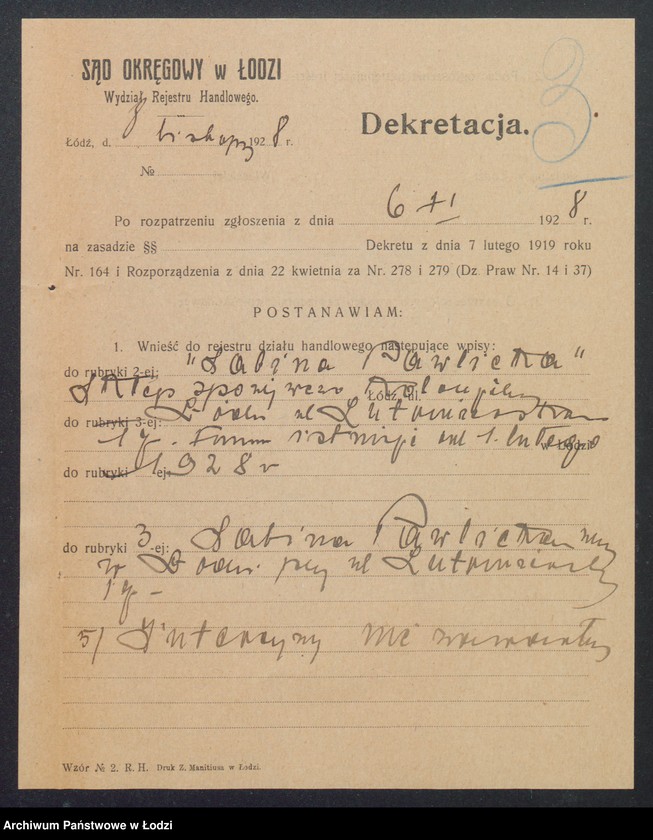 SĄD OKRĘGOWY w ŁODZI
Wydział Rejestru Handlowego.
3
Dekretacja.
Łódź, d. 8 listopa 1928 r.
№
Po rozpatrzeniu zgłoszenia z dnia 6 XI 1928 r.
na zasadzie §§ Dekretu z dnia 7 lutego 1919 roku
Nr. 164 i Rozporządzenia z dnia 22 kwietnia za Nr. 278 i 279 (Dz. Praw Nr. 14 i 37)
POSTANAWIAM:
1. Wnieść do rejestru działu handlowego następujące wpisy:
do rubryki 2-ej: "Sabina Pawlicka"
Sklep spożywczo Łódź, ul.
do rubryki 3-ej: Łódź ul Lutomierska
17. Firma istnieje od 1. lutego w Łodzi
do rubryki ej: 1928 r
do rubryki 3-ej: Sabina Pawlicka
w Łodzi przy ul Lutomierskiej
17 -
5/ Intercyzy nie zawarła
Wzór № 2. R. H. Druk Z. Manitiusa w Łodzi.
Archiwum Państwowe w Łodzi